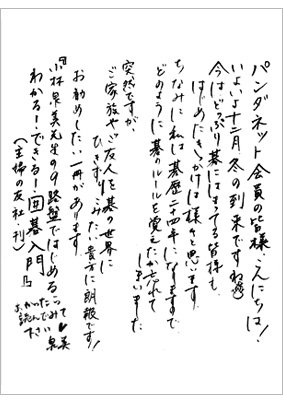 パンダネット会員の皆様、こんにちは!
いよいよ十二月、冬の到来ですね
今はどっぷり碁にはまってる皆様も、
はじめたきっかけは様々と思います。
ちなみに私は碁歴二十四年になりますので、
どのように碁のルールを覚えたか忘れて
しまいました
突然ですが、
ご家族やご友人を碁の世界に
ひきずりこみたい貴方に朗報です!
お勧めしたい一冊があります
『小林泉美先生の9路盤ではじめる
わかる!できる!囲碁入門』
(主婦の友社・刊)
下さい
泉美